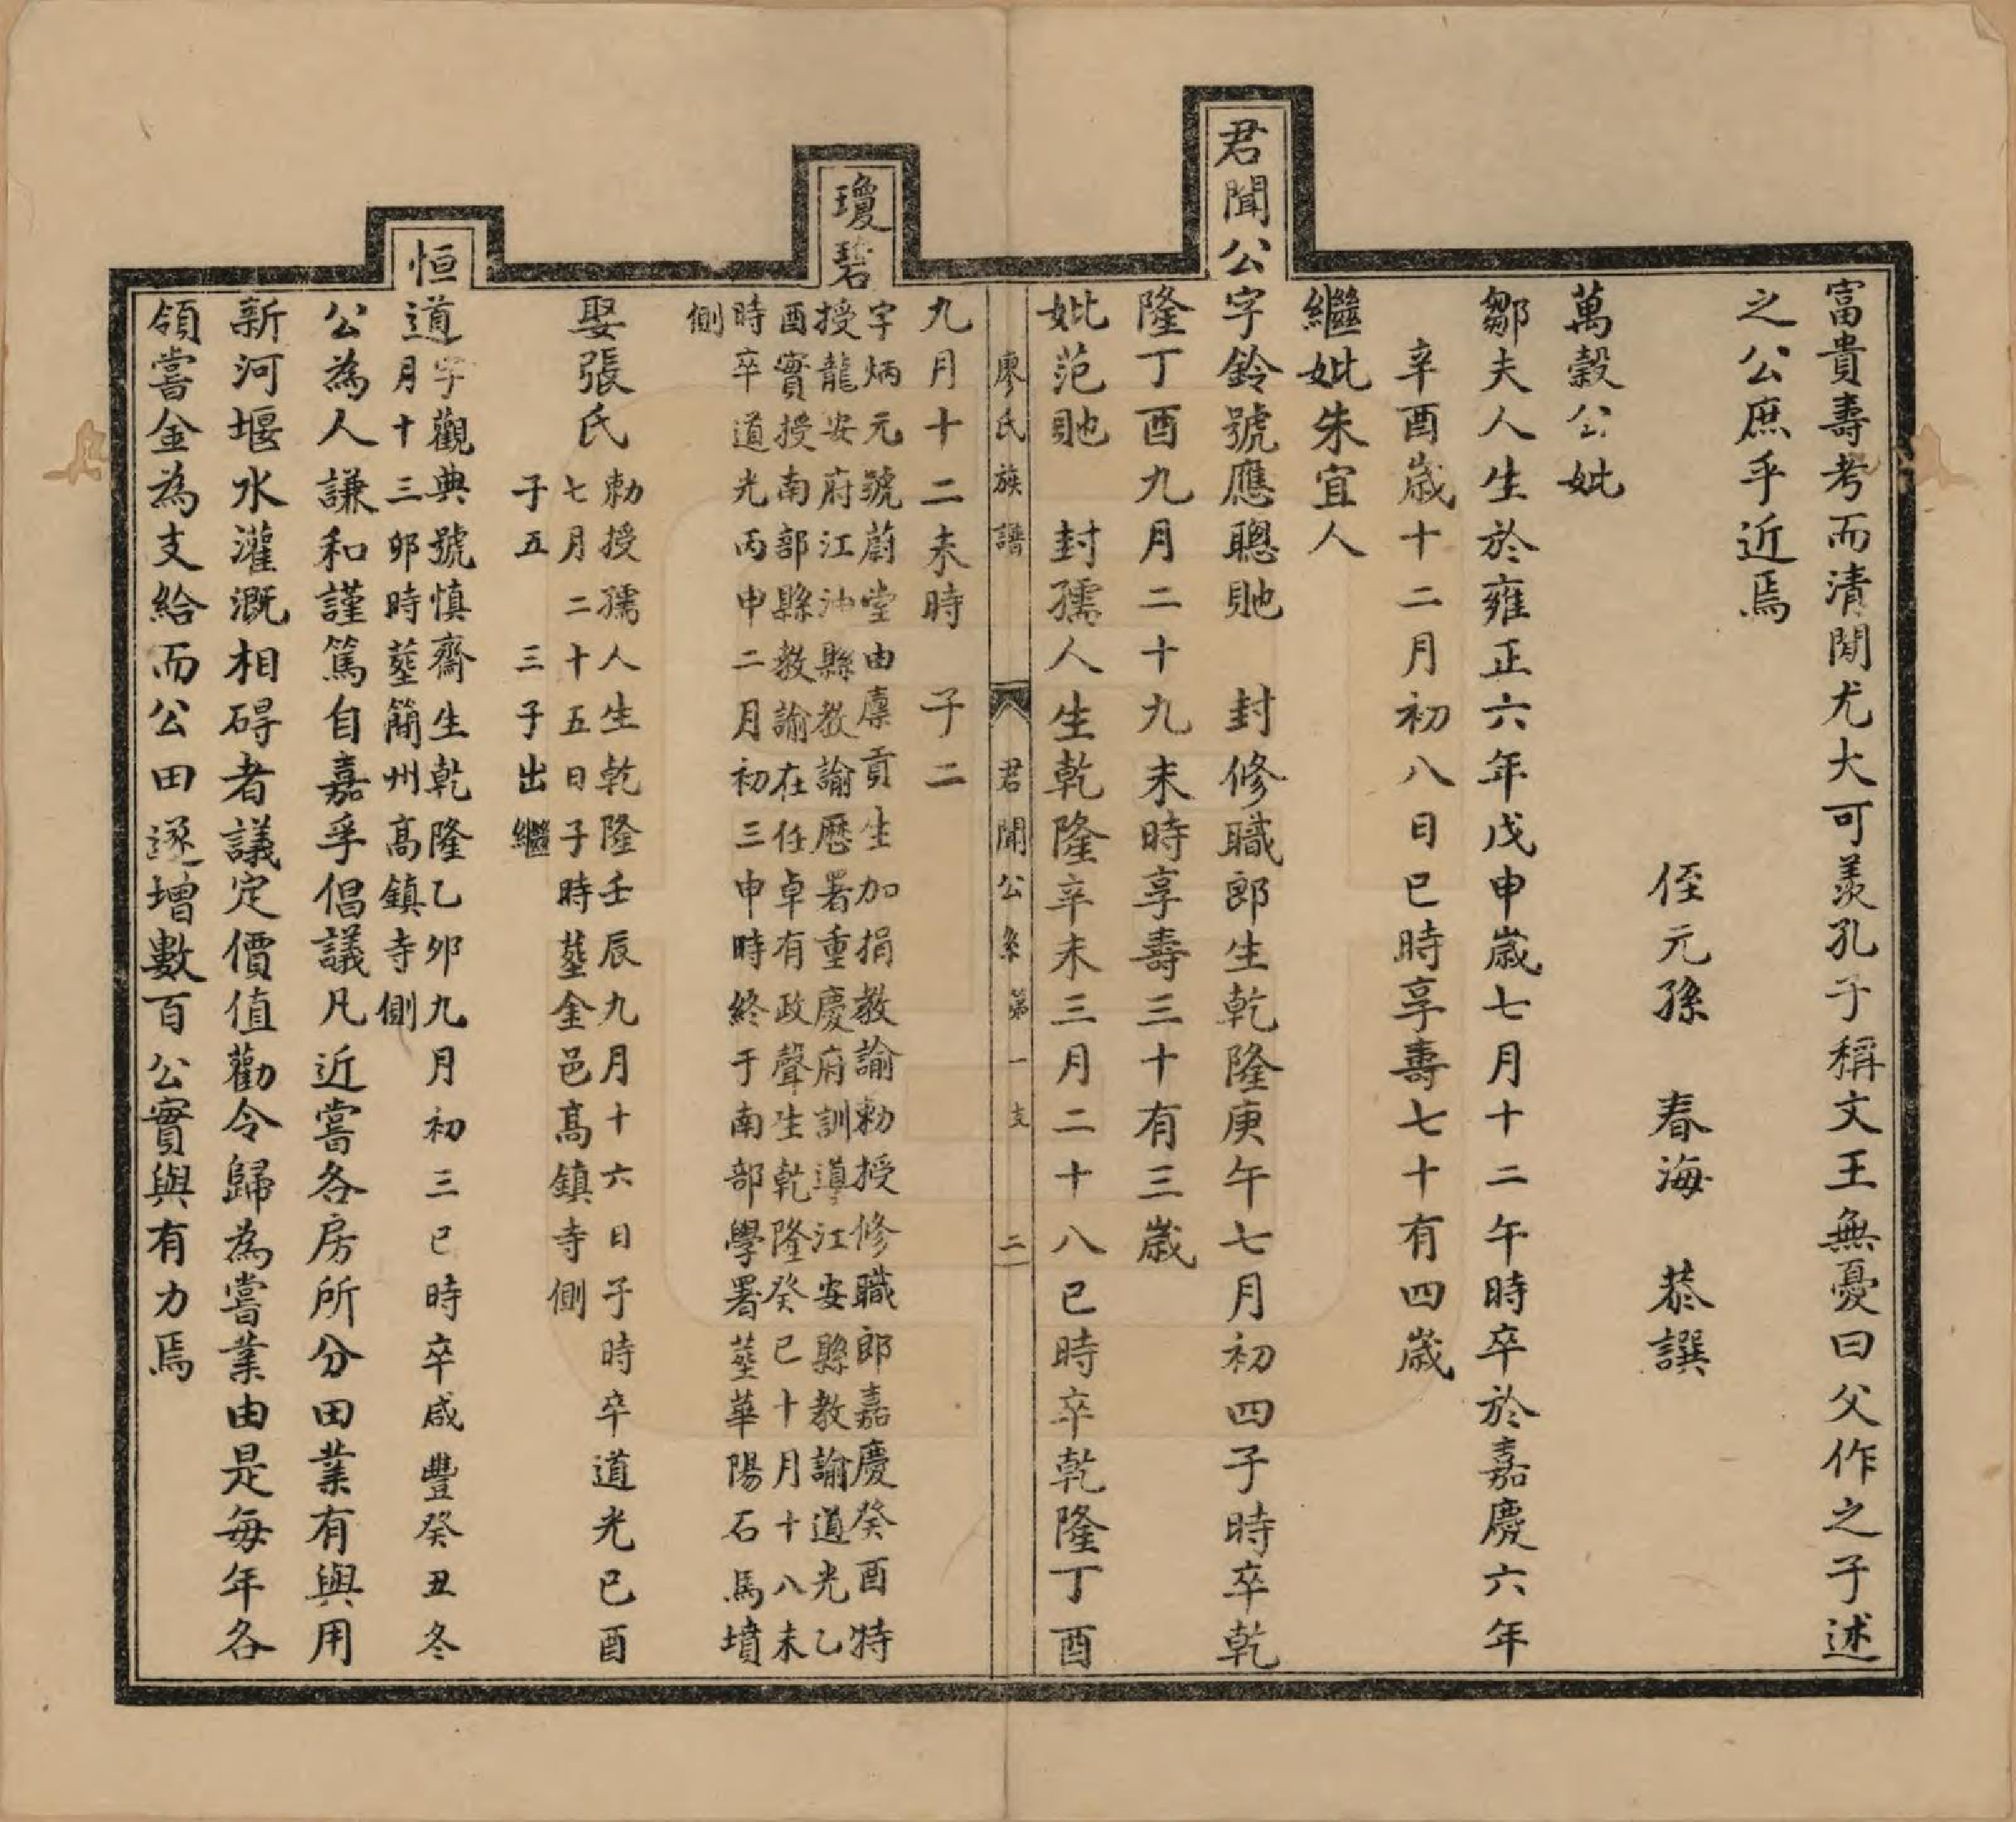 富貴壽考而清閒尤大可羨孔子稱文王無憂曰父作之子述
之公庶乎近焉
侄元孫 春海 恭譔
萬榖公妣
鄒夫人生於雍正六年戊申歲七月十二午時卒於嘉慶六年
辛酉歲十二月初八日巳時享壽七十有四歲
繼妣朱宜人
君聞公字鈴號應聰貤 封修職郎生乾隆庚午七月初四子時卒乾
隆丁酉九月二十九未時享壽三十有三歲
妣范貤 封孺人生乾隆辛未三月二十八巳時卒乾隆丁酉
廖氏族譜 君聞公系 第一支 二
九月十二未時 子二
瓊碧
字炳元號蔚堂由廩貢生加捐教諭勅授修職郎嘉慶癸酉特
授龍安府江油縣教諭歷署重慶府訓導江安縣教諭道光乙
酉實授南部縣教諭在任卓有政聲生乾隆癸巳十月十八未
時卒道光丙申二月初三申時終于南部學署塟華陽石馬墳
側
娶張氏
勅授孺人生乾隆壬辰九月十六日子時卒道光己酉
七月二十五日子時塟金邑高鎮寺側
子五 三子出繼
恒道
字觀典號慎齋生乾隆乙卯九月初三巳時卒咸豐癸丑冬
月十三卯時塟簡州高鎮寺側
公為人謙和謹篤自嘉孚倡議凡近嘗各房所分田業有與用
新河堰水灌溉相碍者議定價值勸令歸為嘗業由是每年各
領嘗金為支給而公田遂增數百公實與有力焉